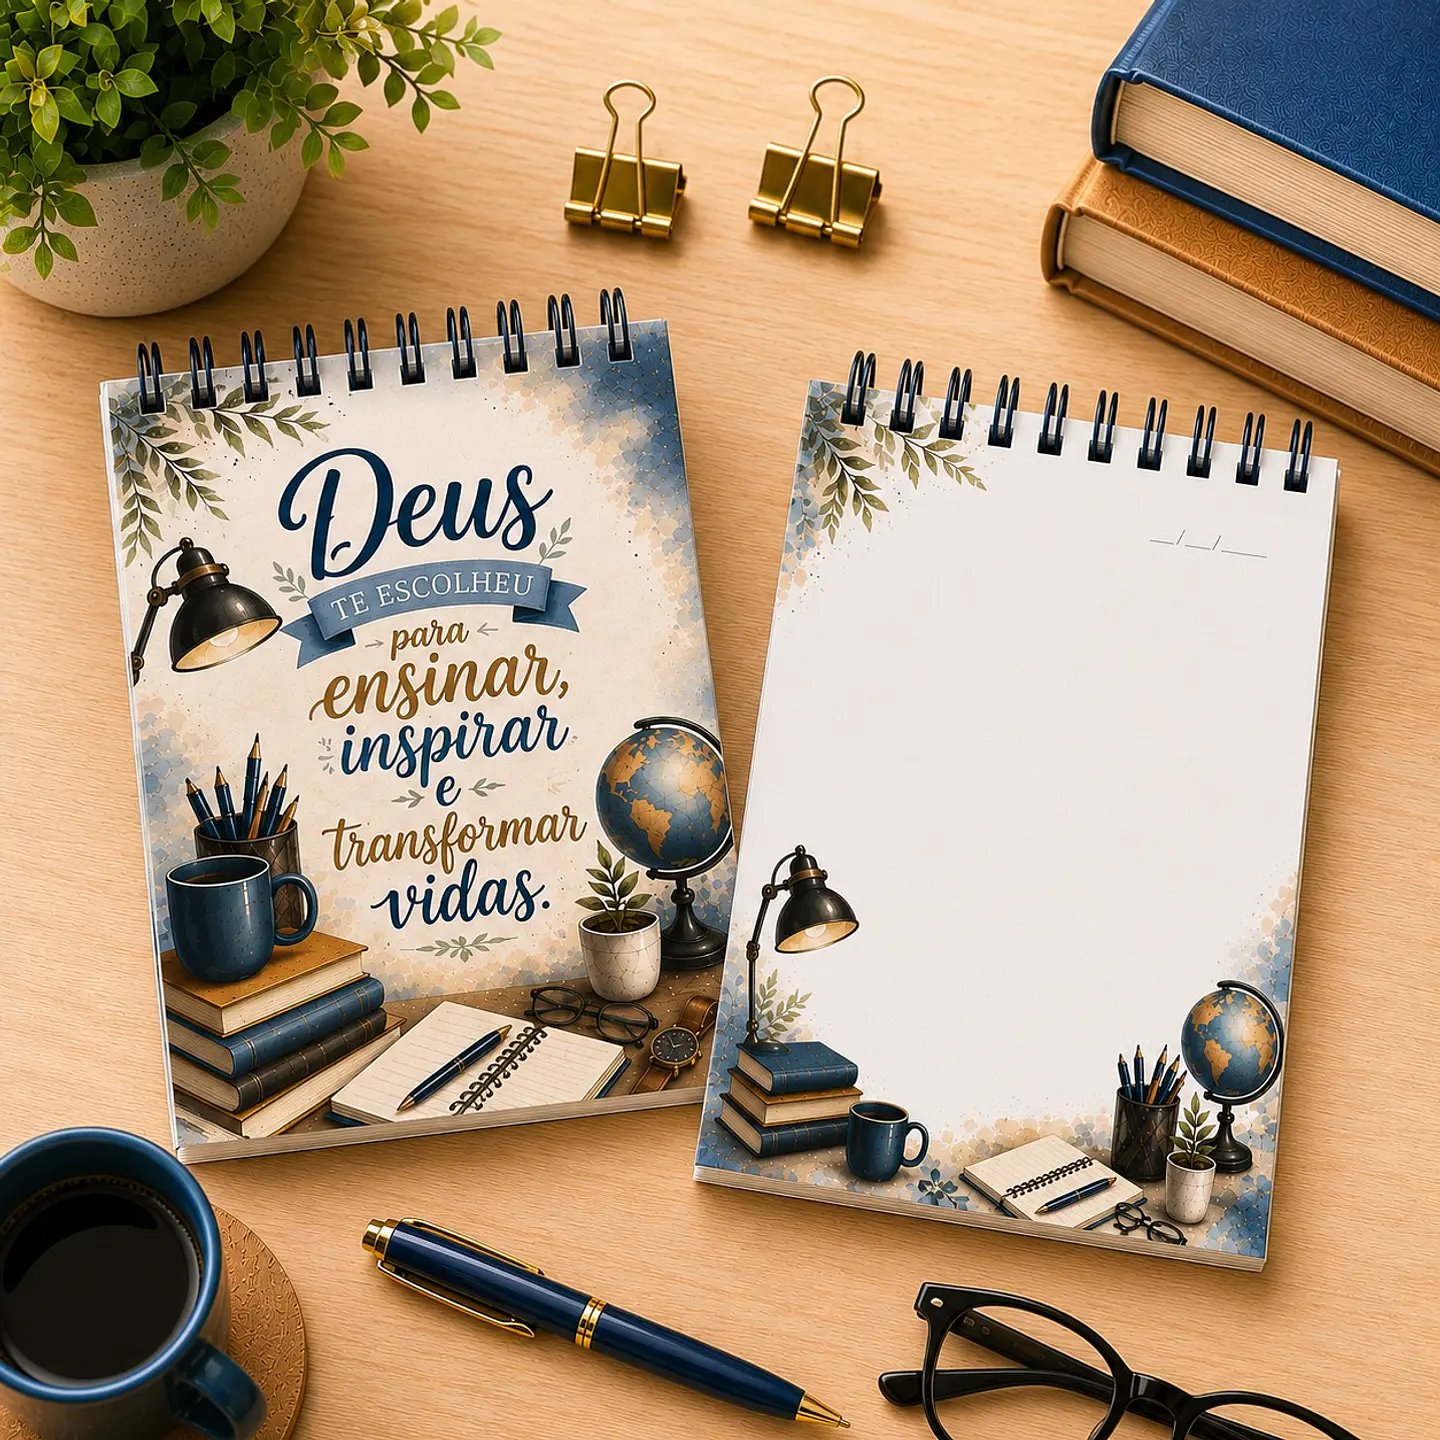 Deus
TE ESCOLHEU
para
ensinar,
inspirar
e
transformar
vidas.
__/__/____